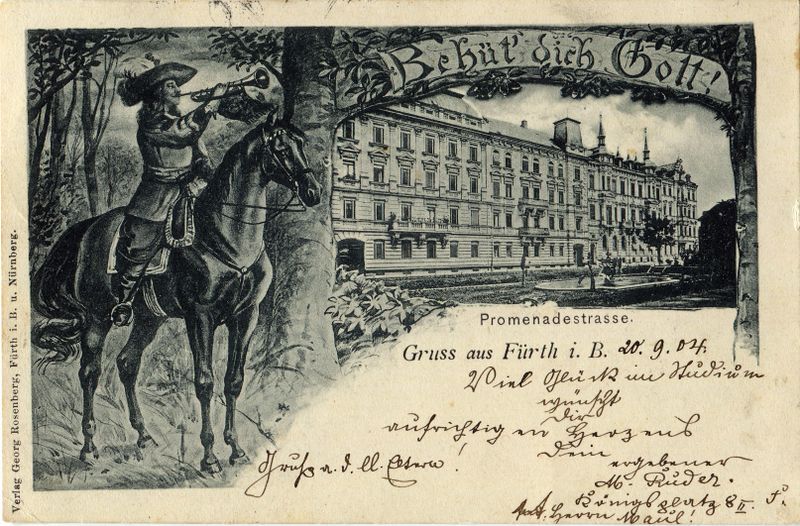 Behüt' dich Gott!
Promenadestrasse.
Gruss aus Fürth i. B. 20. 9. 04.
Viel Glück im Studium
wünscht
Dir
aufrichtigen Herzens
Dein
ergebener
M. Ruder.
Königsplatz 8 II
Herrn Maul!
Gruß a. d. ll. Eltern!
Verlag Georg Rosenberg, Fürth i. B. u. Nürnberg.